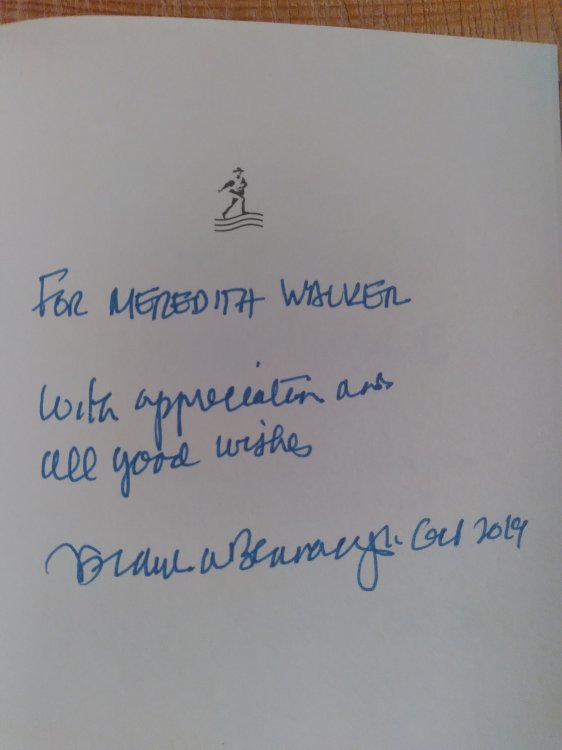 FOR MEREDITH WALKER
With appreciation and
all good wishes
Oct 2019